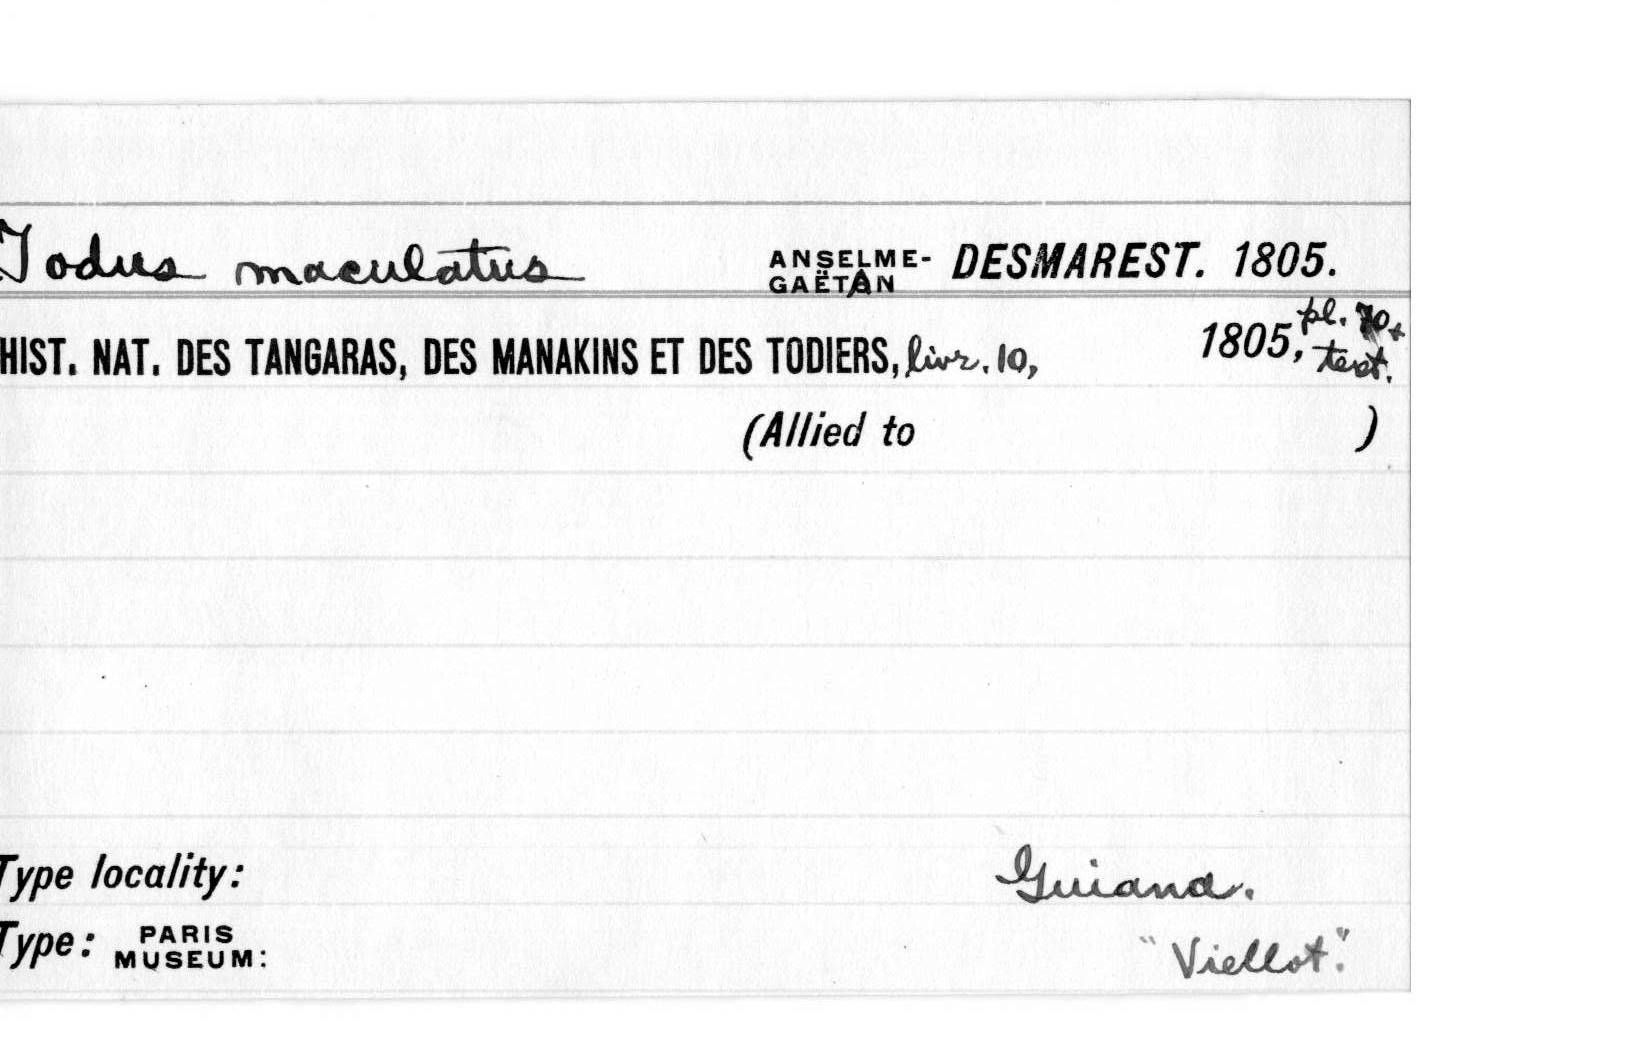 Todus maculatus ANSELME-GAËTAN DESMAREST. 1805.
HIST. NAT. DES TANGARAS, DES MANAKINS ET DES TODIERS, livr. 10, 1805, pl. 70 + text.
(Allied to )
Type locality: Guiana.
Type: PARIS MUSEUM: "Viellot."